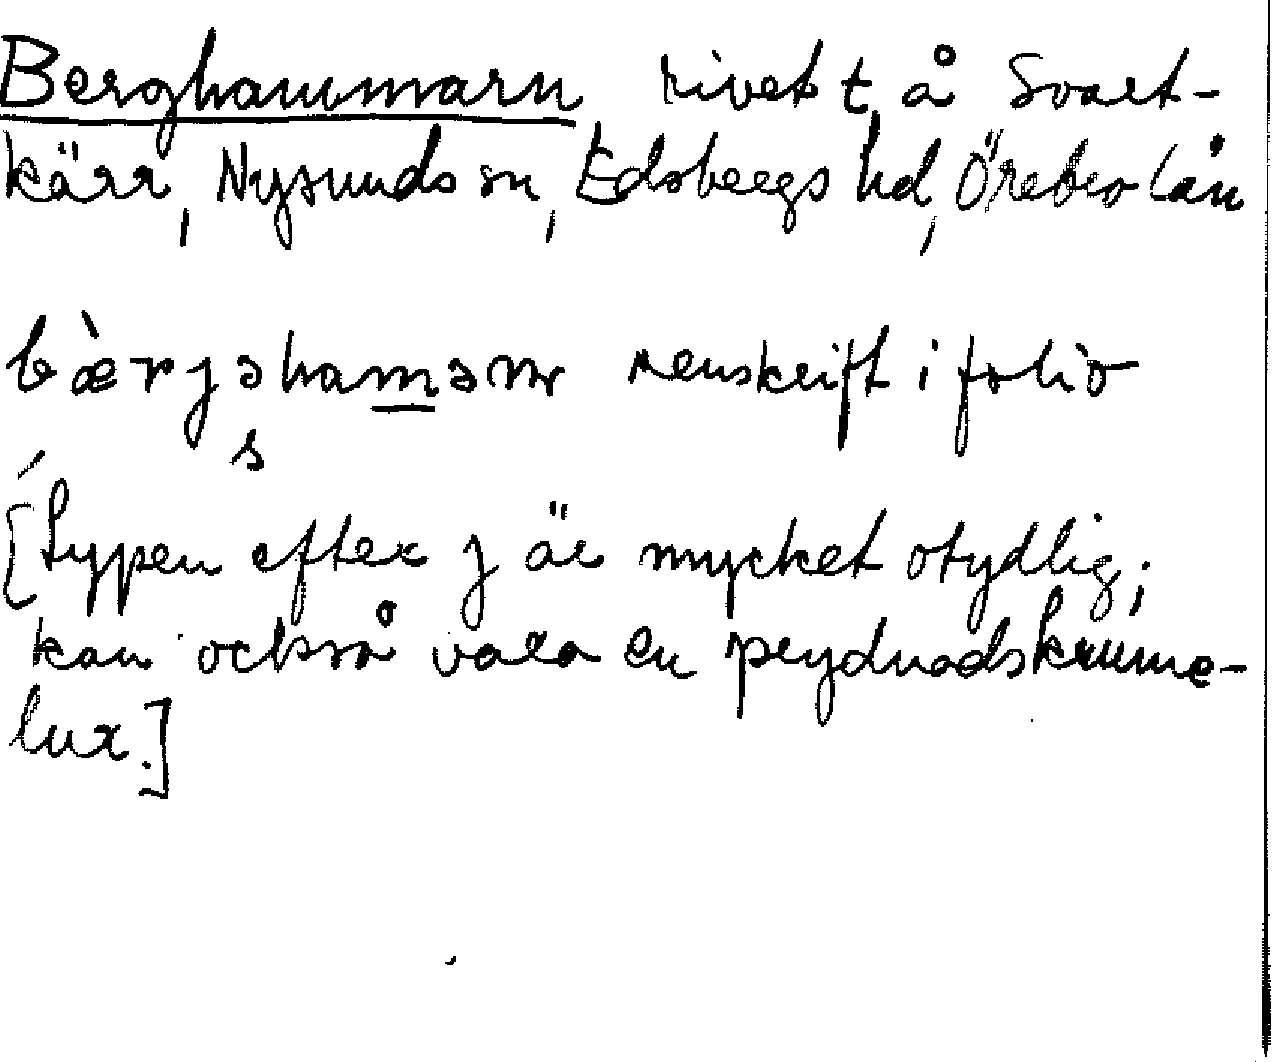 Berghammarn rivet t, å Svart-
kärr, Nysunds sn, Edsbergs hd, Örebro län
bæ̀rjəhaməṇ renskrift i folio
s
[typen efter j är mycket otydlig;
kan också vara en prydnadskrume-
lux.]